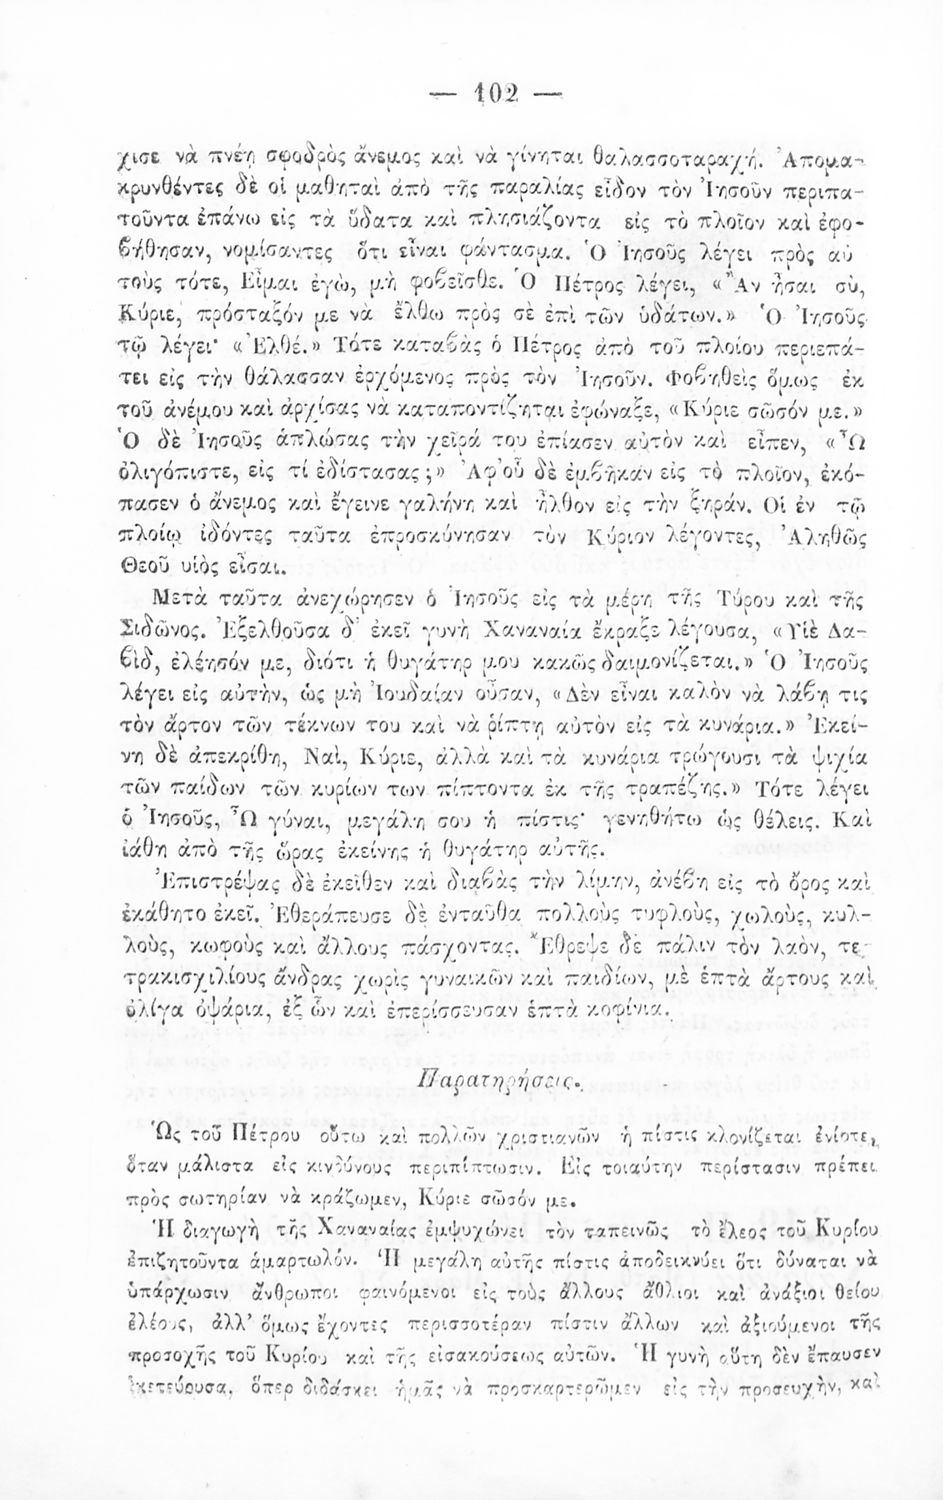 — 102 —
χισε νὰ πνέῃ σφοδρὸς ἄνεμος καὶ νὰ γίνηται θαλασσοταραχή. Ἀπομα-
κρυνθέντες δὲ οἱ μαθηταὶ ἀπὸ τῆς παραλίας εἶδον τὸν Ἰησοῦν περιπα-
τοῦντα ἐπάνω εἰς τὰ ὕδατα καὶ πλησιάζοντα εἰς τὸ πλοῖον καὶ ἐφο-
βήθησαν, νομίσαντες ὅτι εἶναι φάντασμα. Ὁ Ἰησοῦς λέγει πρὸς αὐ
τοὺς τότε, Εἶμαι ἐγὼ, μὴ φοβεῖσθε. Ὁ Πέτρος λέγει, «Ἂν ἦσαι σὺ,
Κύριε, πρόσταξόν με νὰ ἔλθω πρὸς σὲ ἐπὶ τῶν ὑδάτων.» Ὁ Ἰησοῦς
τῷ λέγει· «Ἐλθέ.» Τότε καταβὰς ὁ Πέτρος ἀπὸ τοῦ πλοίου περιεπά-
τει εἰς τὴν θάλασσαν ἐρχόμενος πρὸς τὸν Ἰησοῦν. Φοβηθεὶς ὅμως ἐκ
τοῦ ἀνέμου καὶ ἀρχίσας νὰ καταποντίζηται ἐφώναξε, «Κύριε σῶσόν με.»
Ὁ δὲ Ἰησοῦς ἁπλώσας τὴν χεῖρά του ἐπίασεν αὐτὸν καὶ εἶπεν, «Ὦ
ὀλιγόπιστε, εἰς τί ἐδίστασας;» Ἀφ' οὗ δὲ ἐμβῆκαν εἰς τὸ πλοῖον, ἐκό-
πασεν ὁ ἄνεμος καὶ ἔγεινε γαλήνη καὶ ἦλθον εἰς τὴν ξηράν. Οἱ ἐν τῷ
πλοίῳ ἰδόντες ταῦτα ἐπροσκύνησαν τὸν Κύριον λέγοντες, Ἀληθῶς
Θεοῦ υἱὸς εἶσαι.
Μετὰ ταῦτα ἀνεχώρησεν ὁ Ἰησοῦς εἰς τὰ μέρη τῆς Τύρου καὶ τῆς
Σιδῶνος. Ἐξελθοῦσα δ' ἐκεῖ γυνὴ Χαναναία ἔκραξε λέγουσα, «Υἱὲ Δα-
βὶδ, ἐλέησόν με, διότι ἡ θυγάτηρ μου κακῶς δαιμονίζεται.» Ὁ Ἰησοῦς
λέγει εἰς αὐτὴν, ὡς μὴ Ἰουδαίαν οὖσαν, «Δὲν εἶναι καλὸν νὰ λάβῃ τις
τὸν ἄρτον τῶν τέκνων του καὶ νὰ ῥίπτῃ αὐτὸν εἰς τὰ κυνάρια.» Ἐκεί-
νη δὲ ἀπεκρίθη, Ναὶ, Κύριε, ἀλλὰ καὶ τὰ κυνάρια τρώγουσι τὰ ψιχία
τῶν παίδων τῶν κυρίων των πίπτοντα ἐκ τῆς τραπέζης.» Τότε λέγει
ὁ Ἰησοῦς, Ὦ γύναι, μεγάλη σου ἡ πίστις· γενηθήτω ὡς θέλεις. Καὶ
ἰάθη ἀπὸ τῆς ὥρας ἐκείνης ἡ θυγάτηρ αὐτῆς.
Ἐπιστρέψας δὲ ἐκεῖθεν καὶ διαβὰς τὴν λίμνην, ἀνέβη εἰς τὸ ὄρος καὶ
ἐκάθητο ἐκεῖ. Ἐθεράπευσε δὲ ἐνταῦθα πολλοὺς τυφλοὺς, χωλοὺς, κυλ-
λοὺς, κωφοὺς καὶ ἄλλους πάσχοντας. Ἔθρεψε δὲ πάλιν τὸν λαὸν, τε-
τρακισχιλίους ἄνδρας χωρὶς γυναικῶν καὶ παιδίων, μὲ ἑπτὰ ἄρτους καὶ
ὀλίγα ὀψάρια, ἐξ ὧν καὶ ἐπερίσσευσαν ἑπτὰ κοφίνια.
Παρατηρήσεις.
Ὡς τοῦ Πέτρου οὕτω καὶ πολλῶν χριστιανῶν ἡ πίστις κλονίζεται ἐνίοτε,
ὅταν μάλιστα εἰς κινδύνους περιπίπτωσιν. Εἰς τοιαύτην περίστασιν πρέπει
πρὸς σωτηρίαν νὰ κράζωμεν, Κύριε σῶσόν με.
Ἡ διαγωγὴ τῆς Χαναναίας ἐμψυχώνει τὸν ταπεινῶς τὸ ἔλεος τοῦ Κυρίου
ἐπιζητοῦντα ἁμαρτωλόν. Ἡ μεγάλη αὐτῆς πίστις ἀποδεικνύει ὅτι δύναται νὰ
ὑπάρχωσιν ἄνθρωποι φαινόμενοι εἰς τοὺς ἄλλους ἄθλιοι καὶ ἀνάξιοι θείου
ἐλέους, ἀλλ' ὅμως ἔχοντες περισσοτέραν πίστιν ἄλλων καὶ ἀξιούμενοι τῆς
προσοχῆς τοῦ Κυρίου καὶ τῆς εἰσακούσεως αὐτῶν. Ἡ γυνὴ αὕτη δὲν ἔπαυσεν
ἱκετεύουσα, ὅπερ διδάσκει ἡμᾶς νὰ προσκαρτερῶμεν εἰς τὴν προσευχὴν, καὶ